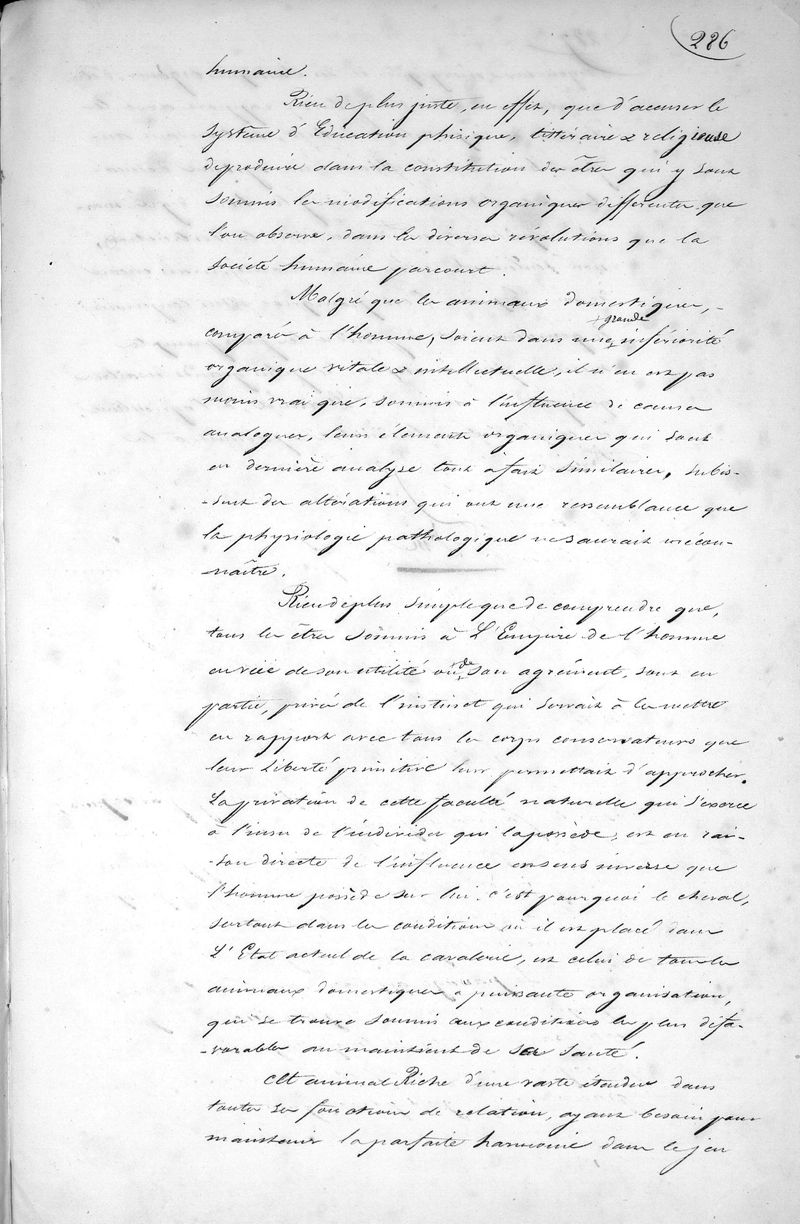 286
humaine.
Rien de plus juste, en effet, que d'accuser le
système d'Education phisique, littéraire & religieuse
de produire dans la constitution des êtres qui y sont
soumis les modifications organiques differentes que
l'on observe, dans les diverses révolutions que la
société humaine parcourt.
Malgré que les animaux domestiques, -
comparés à l'homme, soient dans une grande infériorité
organique vitale & intellectuelle, il n'en est pas
moins vrai que, soumis à l'influence de causes
analogues, leurs élements organiques qui sont
en dernière analyse tout à fait similaires, subis-
-sent des altérations qui ont une ressemblance que
la physiologie pathologique ne saurait mécon-
naître.
Rien de plus simple que de comprendre que,
tous les êtres soumis à L'Empire de l'homme
en vue de son utilité ou de son agrément, sont en
partie, privés de l'instinct qui servait à les mettre
en rapport avec tous les corps conservateurs que
leur Liberté primitive leur permettait d'approcher.
La privation de cette faculté naturelle qui s'exerce
à l'insu de l'individu qui la possède, est en rai-
-son directe de l'influence en sens inverse que
l'homme possède sur lui. c'est pourquoi le cheval,
surtout dans les conditions où il est placé dans
L'Etat actuel de la cavalerie, est celui de tous les
animaux domestiques à puissante organisation,
qui se trouve soumis aux conditions les plus défa-
-vorables au maintient de sa santé.
Cet animal Riche d'une vaste étendue dans
toutes ses fonctions de relation, ayant besoin pour
maintenir la parfaite harmonie dans le jeu